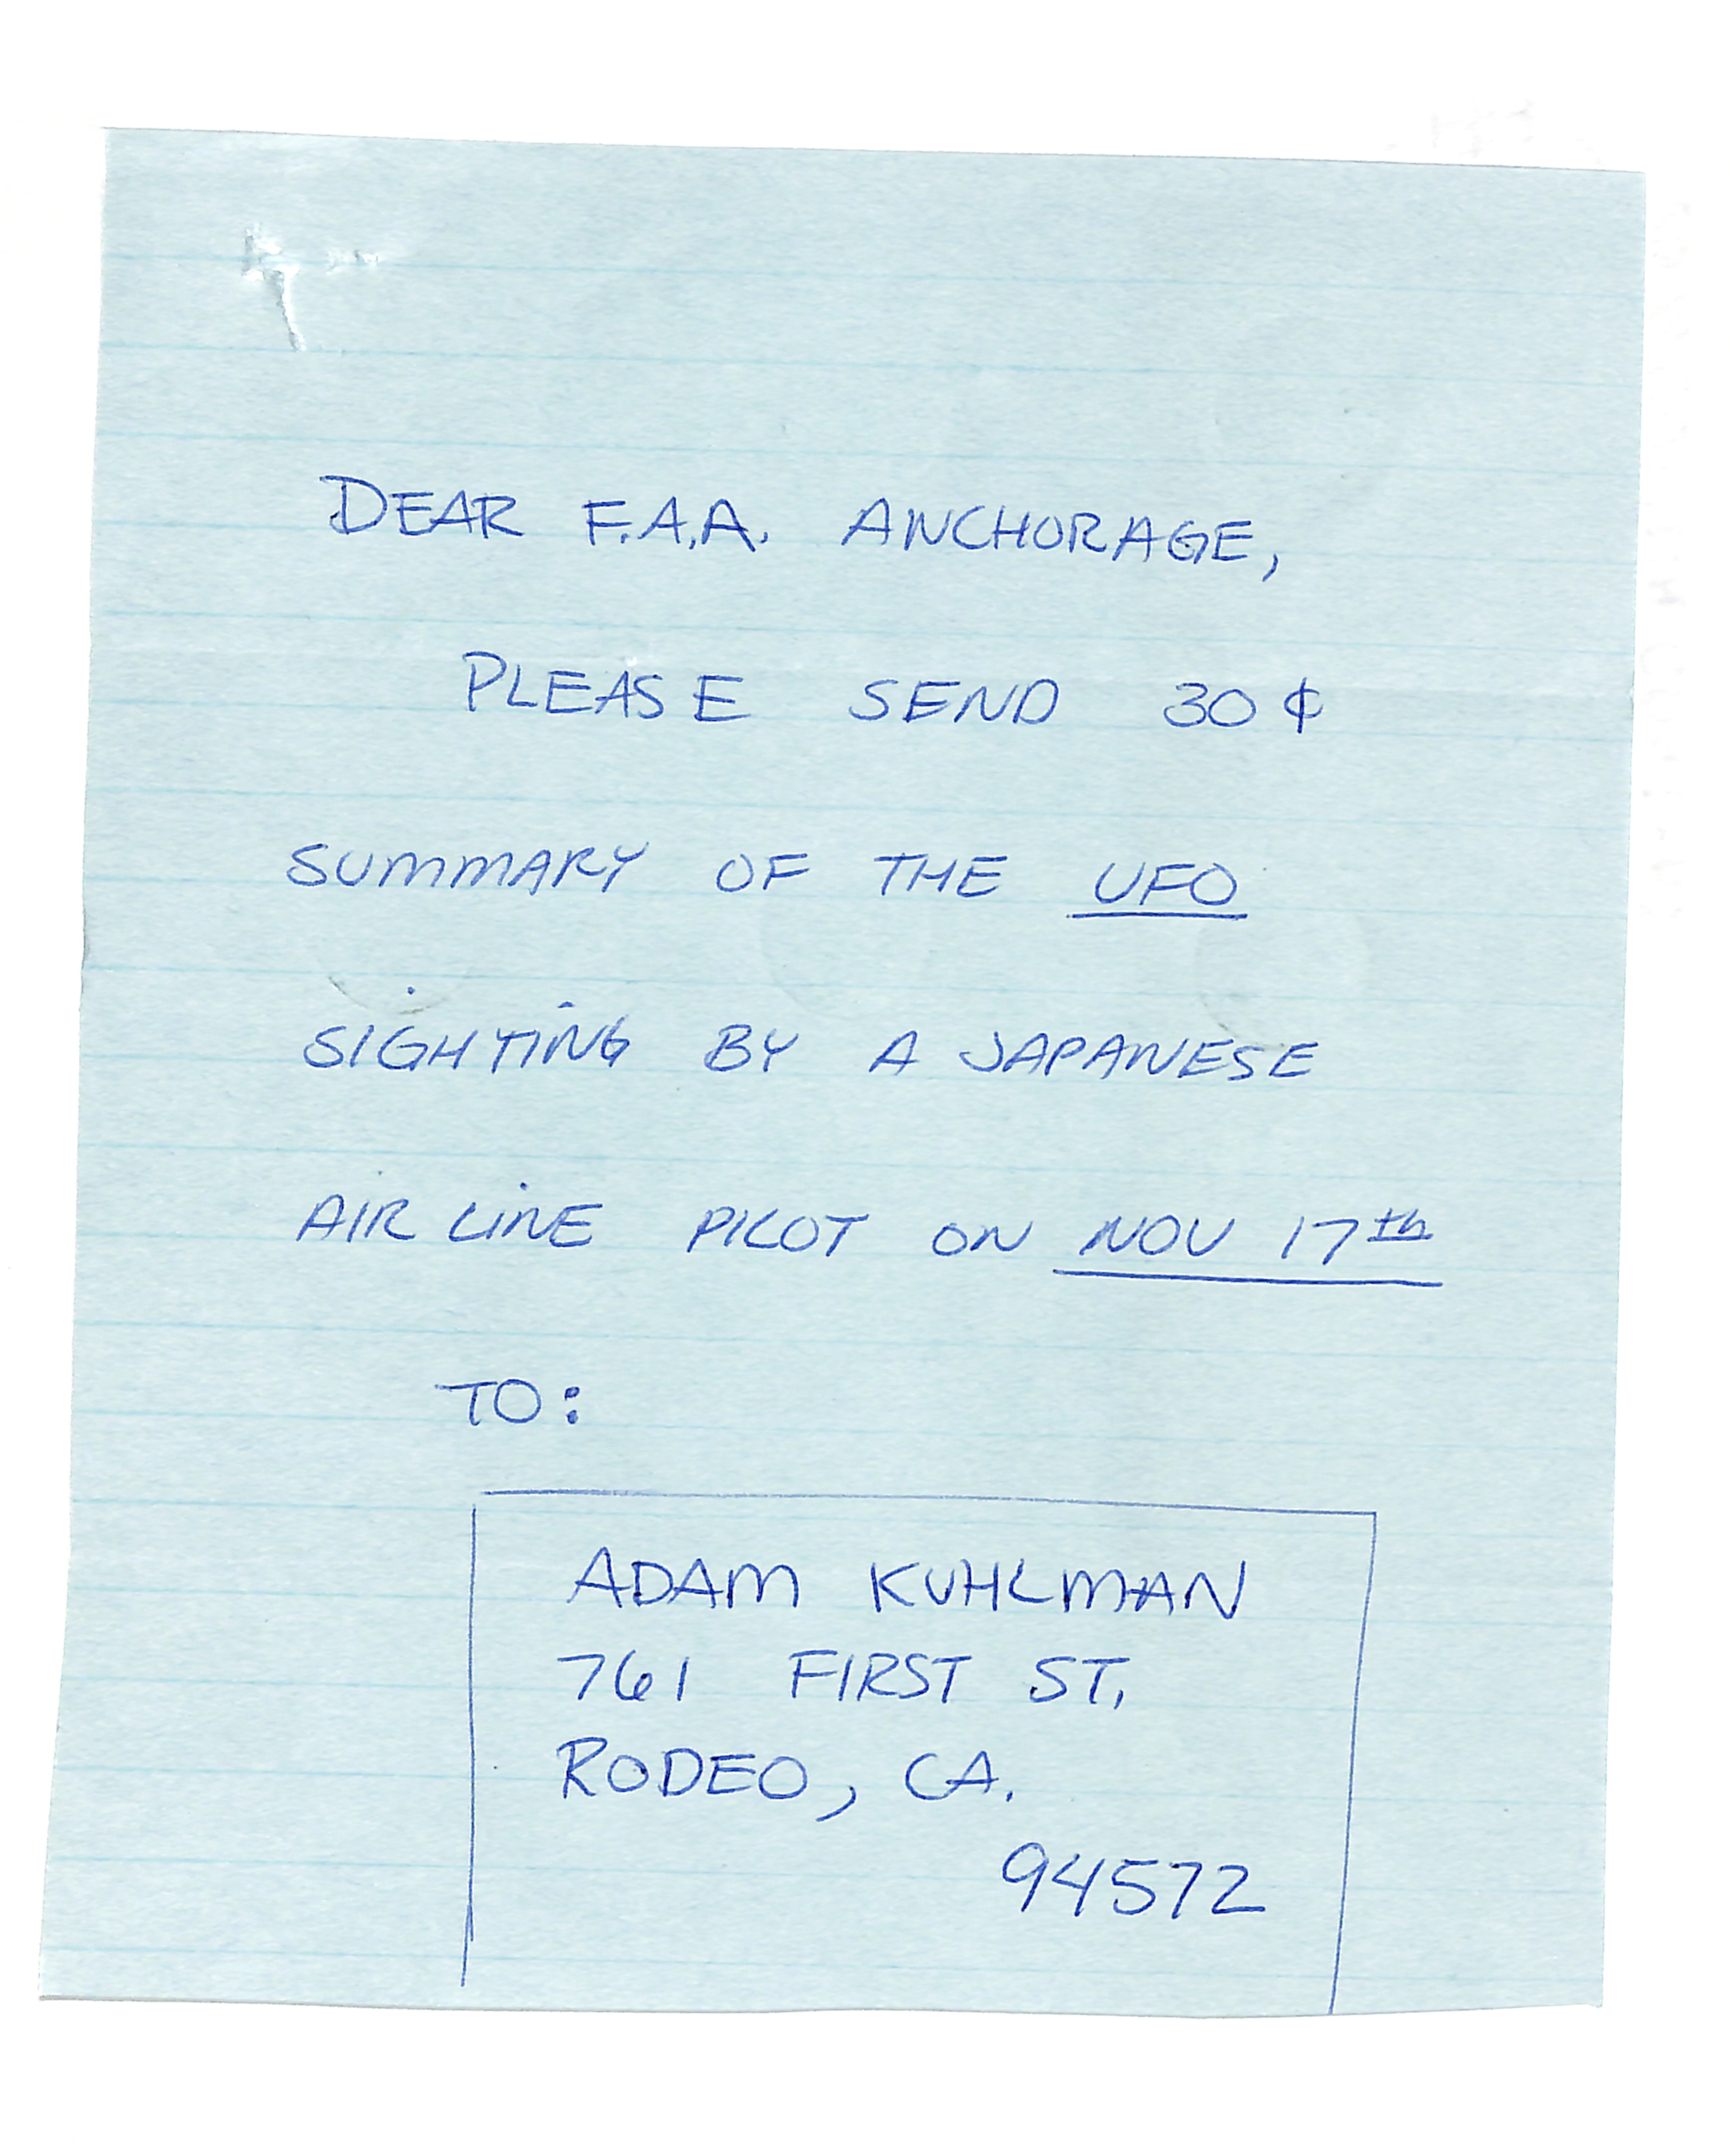 DEAR F.A.A. ANCHORAGE,
PLEASE SEND 30¢
SUMMARY OF THE UFO
SIGHTING BY A JAPANESE
AIR LINE PILOT ON NOV 17th
TO:
ADAM KUHLMAN
761 FIRST ST.
RODEO, CA.
94572